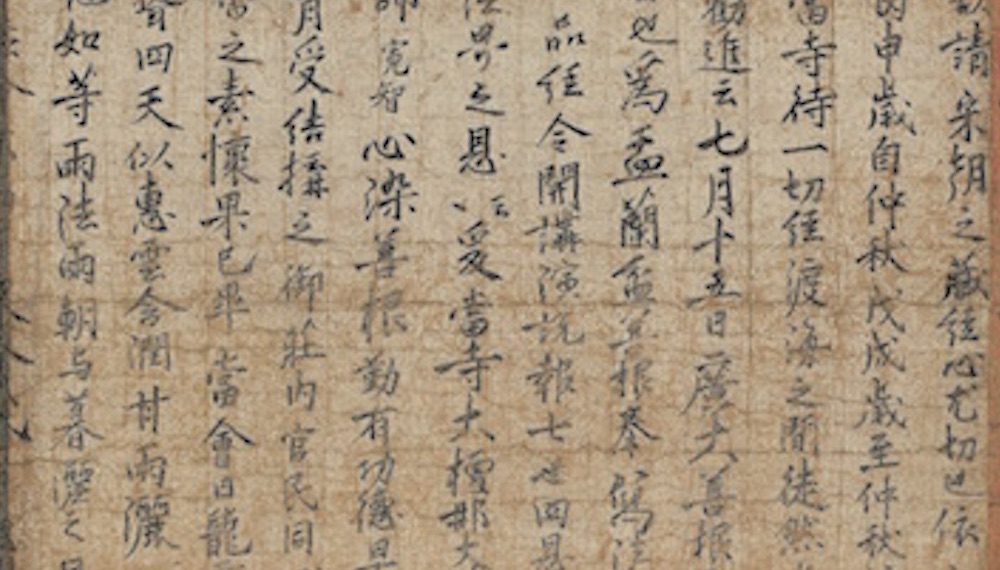 請宋朝之蔵経心尤切也依
申歳自仲秋戊戌歳至仲秋
當寺待一切経渡海之間徒然
勧進云七月十五日廣大善根
也為盂蘭盆并根奉寫法
品経令開講演説報七世四恩
法界之恩 爰當寺大檀那大
師寛智心染善根勤有功德
月受結構之御莊内官民同
之素懷果已畢當會日龍
四天似惠雲含潤甘雨灑
如等雨法雨朝与暮灑之